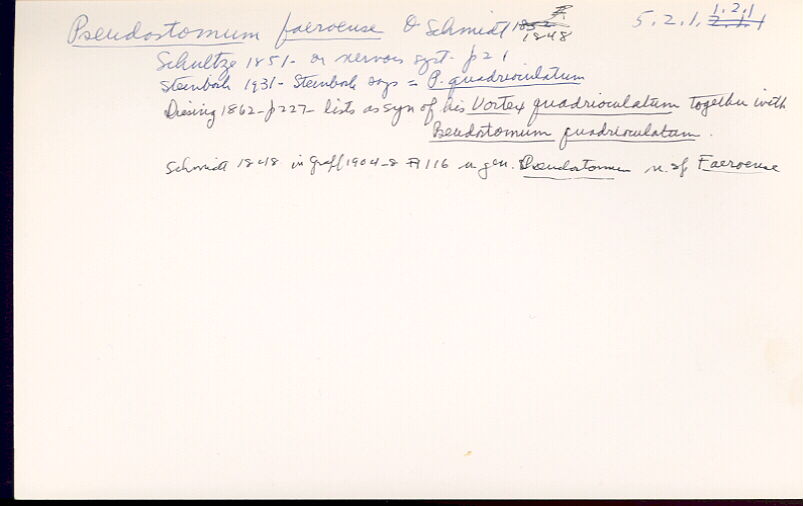 Pseudostomum faeroense O Schmidt 1852 1848 5.2.1.2.1.1 1.2.1
Schultze 1851- on nervous syst- p21
Steinböck 1931- Steinböck says = P. quadrioculatum
Diesing 1862-p227- lists as syn of his Vortex quadrioculatum together with
Pseudostomum quadrioculatum.
Schmidt 1848 in Graff 1904-8 116 n gen. Pseudostomum n. sp Faeroense